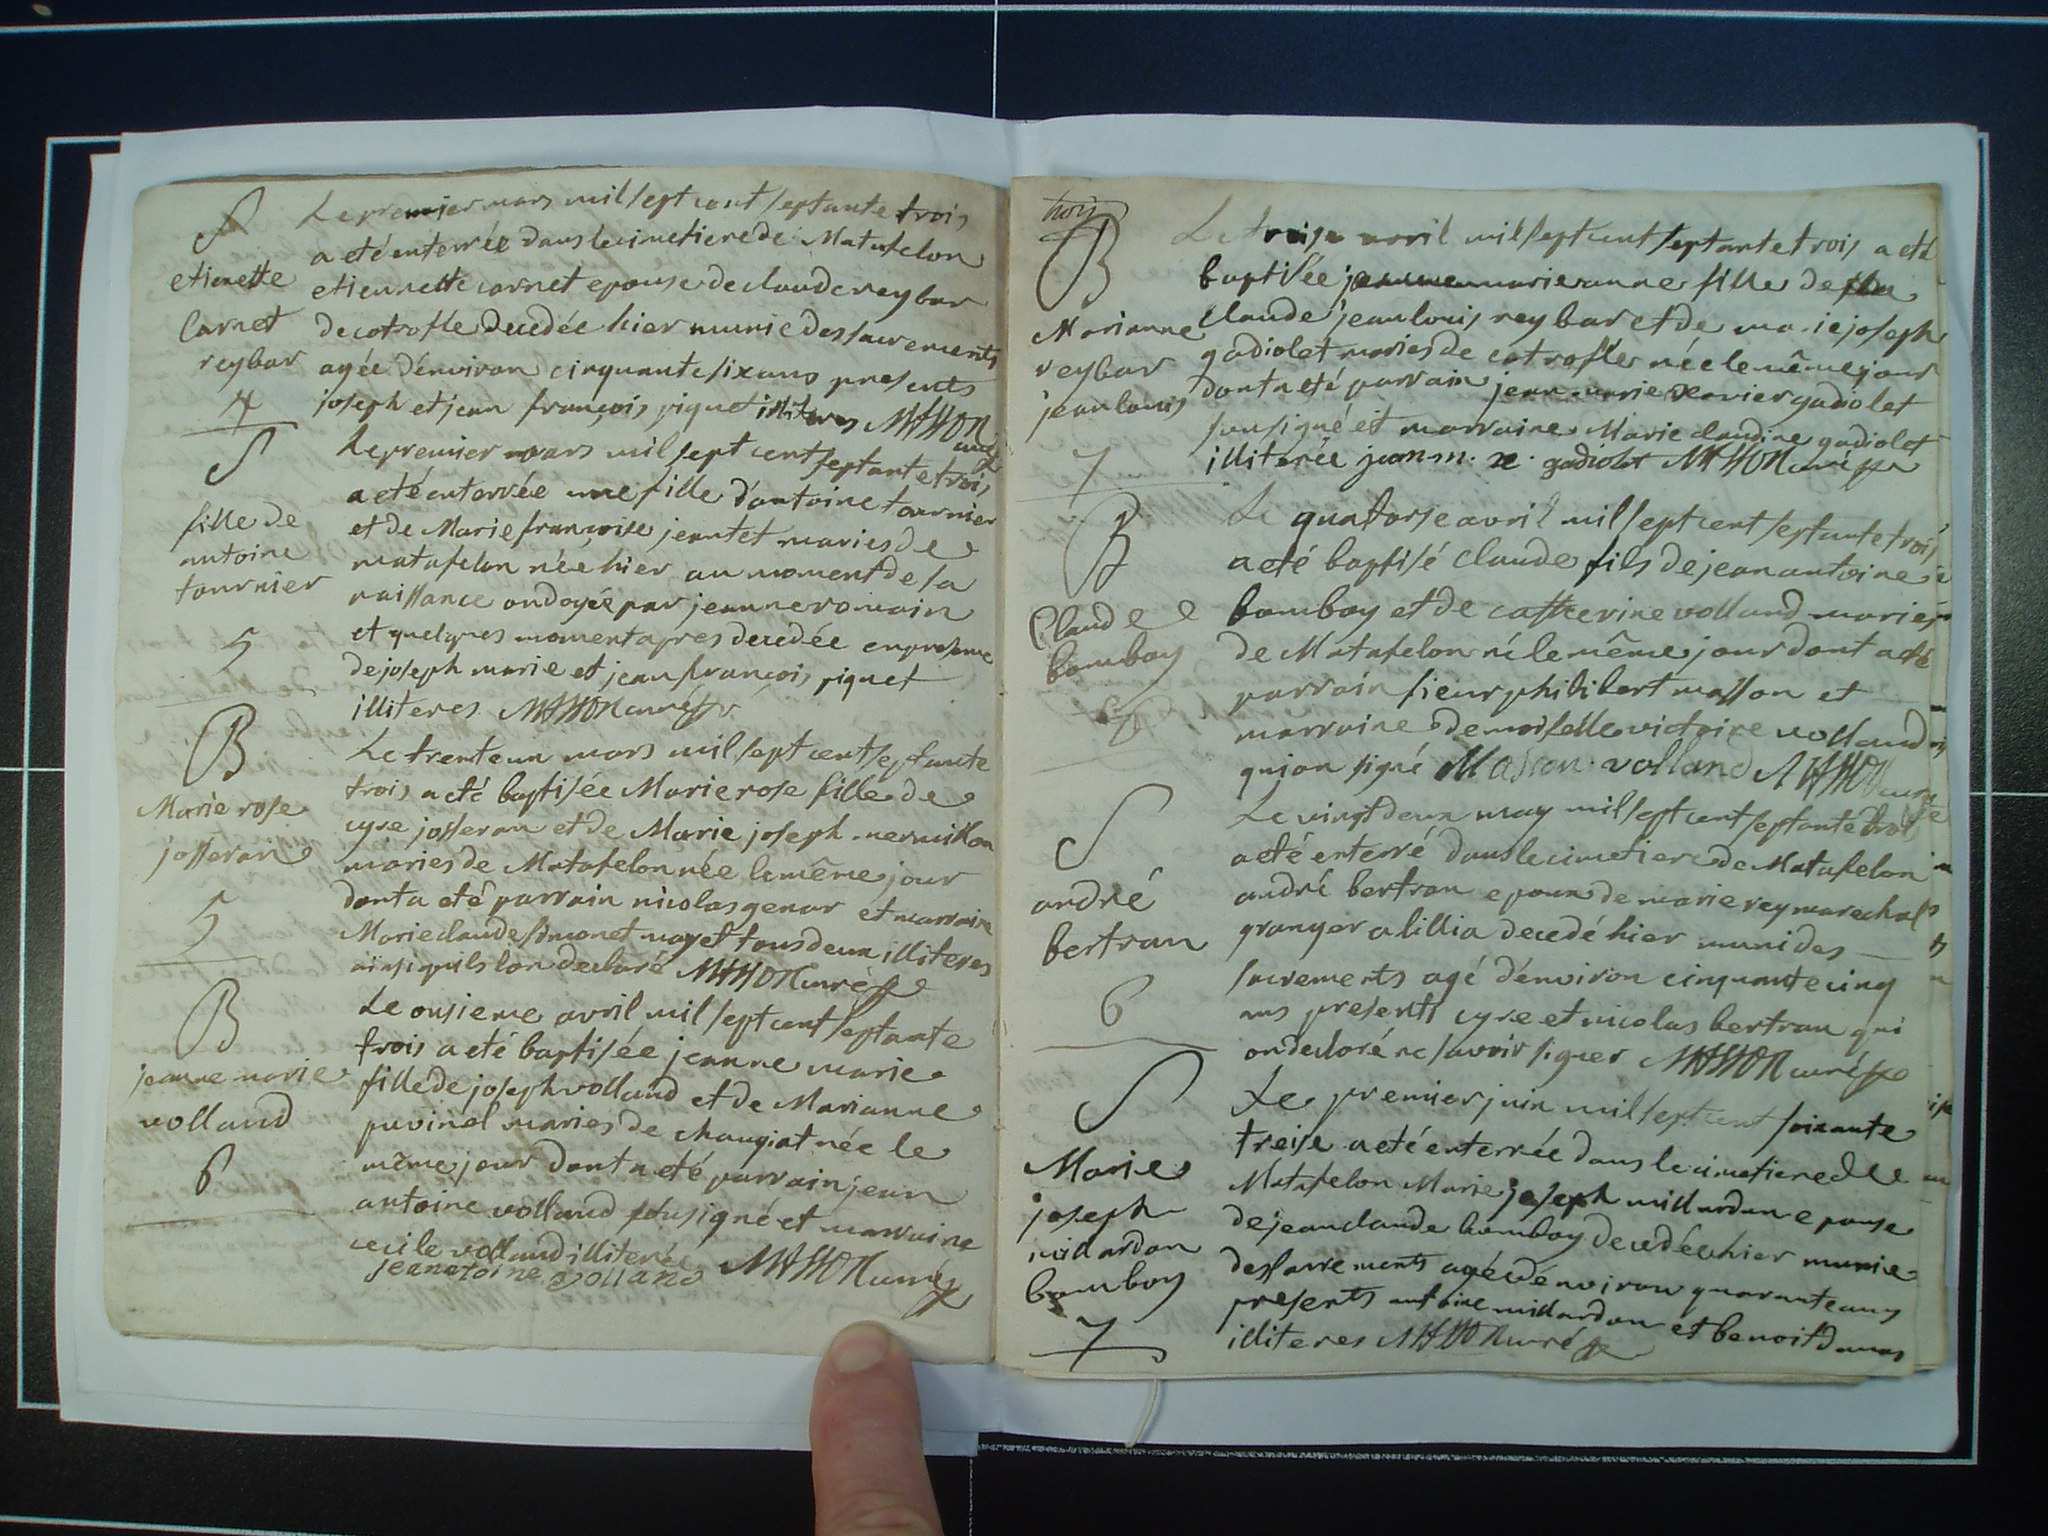 S
etienette
Carnet
reybar
4
Le premier mars mil sept cent septante trois
a eté enterrée dans le cimetiere de Matafelon
etiennette carnet epouse de claude reybar
de cotrofle decedée hier munie des sacrements
agée d'environ cinquante six ans presents
joseph et jean françois piquet illiteres MASSON
curé
S
fille de
antoine
tournier
5
Le premier mars mil sept cent septante trois
a eté enterrée une fille d'antoine tournier
et de Marie françoise jeantet maries de
matafelon née hier au moment de sa
naissance ondoyée par jeanne romain
et quelques moment apres decedée en presence
de joseph marie et jean françois piquet
illiteres MASSON curé
B
Marie rose
josseran
5
Le trente un mars mil sept cent septante
trois a eté baptisée Marie rose fille de
cyre josseran et de Marie joseph nermillon
maries de Matafelon née le même jour
dont a eté parrain nicolas genar et marraine
Marie claude simonet mayet tous deux illiteres
ainsi quils lon declaré MASSON curé
B
jeanne marie
volland
6
Le onsieme avril mil sept cent septante
trois a eté baptisée jeanne marie
fille de joseph volland et de Marianne
puvinel maries de changiat née le
même jour dont a eté parrain jean
antoine volland sousigné et marraine
cecile volland illiterée MASSON curé
jeanatoine volland
trois
B
Marianne
reybar
jeanlouis
7
Le treise avril mil sept cent septante trois a eté
baptisée jeanne marieanne fille de
claude jeanlouis reybar et de marie joseph
gadiolet maries de cotrofle née le même jour
dont a eté parrain jean marie xavier gadiolet
sousigné et marraine Marie claudine gadiolet
illiterée jean m. x. gadiolet MASSON curé
B
Claude
bomboy
Le quatorse avril mil sept cent septante trois
a eté baptisé claude fils de jean antoine
bomboy et de catherine volland maries
de Matafelon né le même jour dont a eté
parrain sieur philibert masson et
marraine demoiselle victoire volland
qui on signé Masson volland MASSON curé
S
andré
bertran
6
Le vingt deux may mil sept cent septante trois
a eté enterré dans le cimetiere de Matafelon
andré bertran epoux de marie rey marechal
granger a lillia decedé hier muni des
sacrements agé d'environ cinquante cinq
ans presents cyre et nicolas bertran qui
on declaré ne savoir signer MASSON curé
S
Marie
joseph
millardan
bomboy
7
Le premier juin mil sept cent soixante
treise a eté enterrée dans le cimetiere de
Matafelon Marie joseph millardan epouse
de jean claude bomboy decedée hier munie
des sacrements agée d'environ quarante ans
presents antoine millardan et benoit damas
illiteres MASSON curé